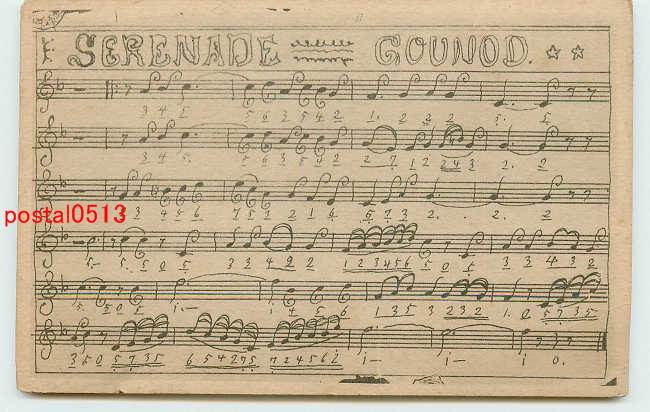 SERENADE GOUNOD.
3 4 5 5 6 3 5 4 2 1. 2 2 2 5. 5
3 4 5. 5 6 3 5 4 2 2 7 1 2 2 4 3 1. 2
postal0513
3 4 5 6
5 7 3 2. 2. 2
5. 5. 5 0 5 3 3 4 2 2 1 2 3 4 5 6 5 0 5 3 3 4 3 2
1 3 5 3 2 3 2 1. 0 5 7 3 5
3 5 0 5 7 3 5 6 5 4 2 7 5 7 2 4 5 6 2 i— i— i 0.